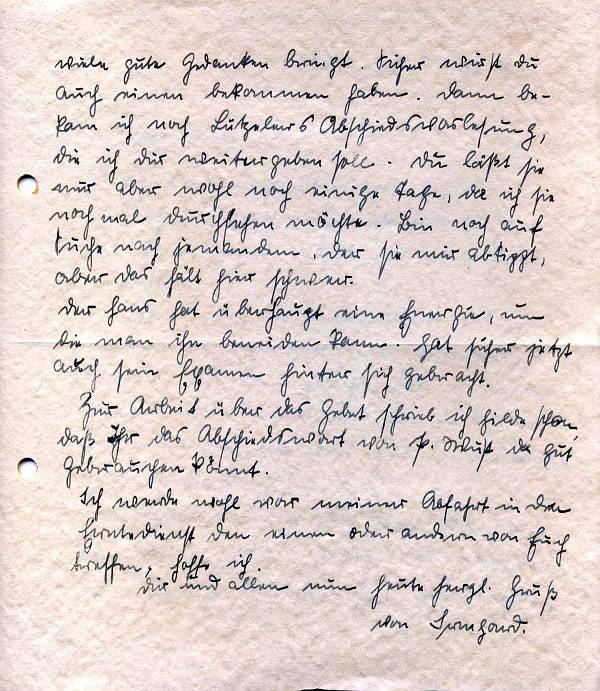 viele gute Gedanken bringt. Sicher wirst du
auch einen bekommen haben. Dann be-
kam ich noch Lützelers Abschiedsvorlesung,
die ich dir weitergeben soll. Du läßt sie
mir aber wohl noch einige Tage, da ich sie
nochmal durchsehen möchte. Bin noch auf
Suche nach jemandem, der sie mir abtippt,
aber das hält hier schwer.
Der Hans hat überhaupt eine Energie, um
die man ihn beneiden kann. Hat sicher jetzt
auch sein Examen hinter sich gebracht.
Zur Arbeit über das Gebet schrieb ich Hilde schon,
daß Ihr das Abschiedswort von P. Wust da gut
gebrauchen könnt.
Ich werde wohl vor meiner Abfahrt in den
Erntedienst den einen oder andern von Euch
treffen, hoffe ich.
Dir und allen nun heute herzl. Gruß
von Irmgard.